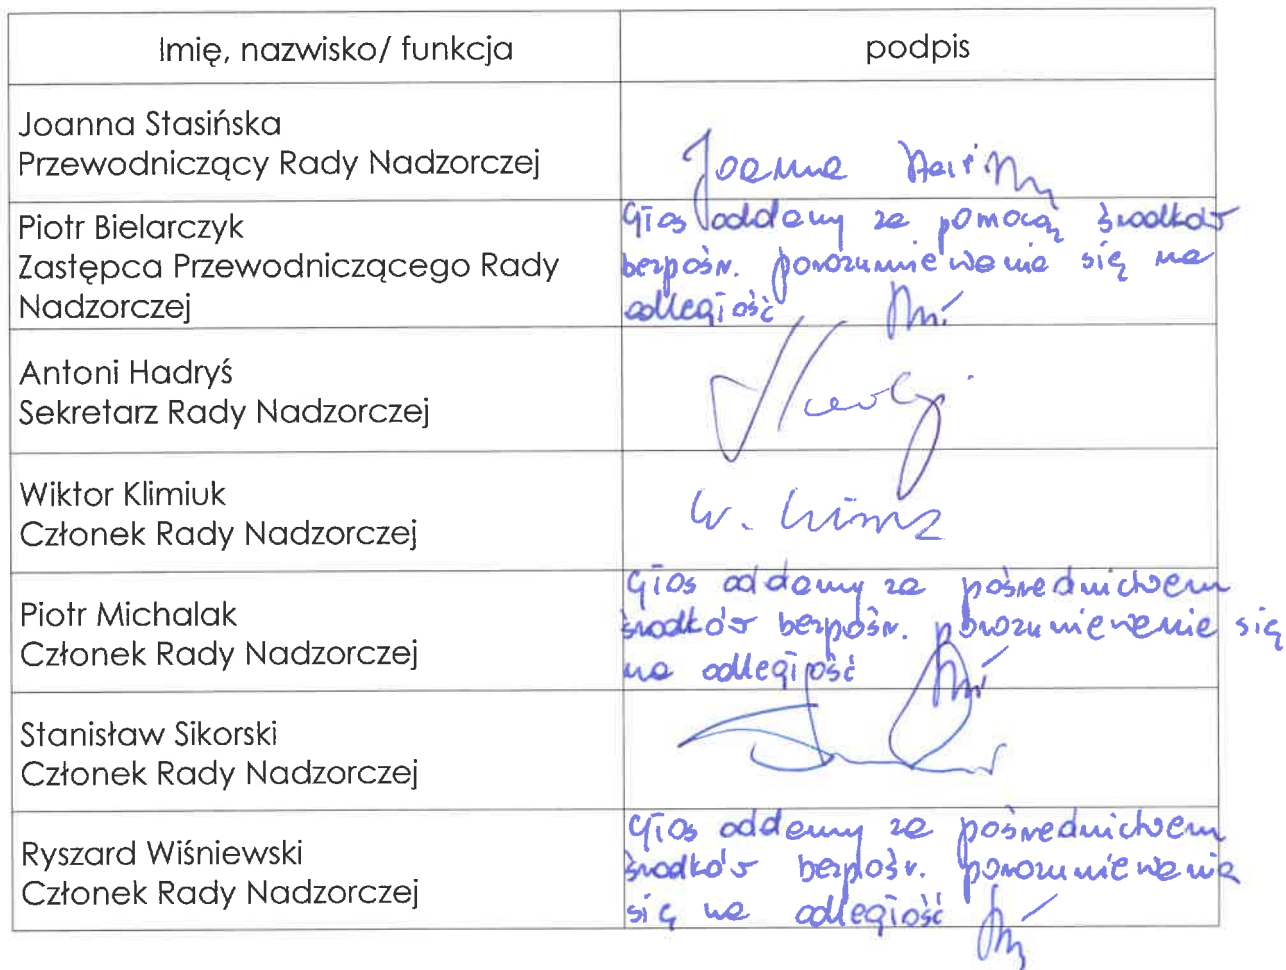 Imię, nazwisko/ funkcja
podpis
Joanna Stasińska
Przewodniczący Rady Nadzorczej
Joanna
Piotr Bielarczyk
Zastępca Przewodniczącego Rady
Nadzorczej
Głos oddany za pomocą środków
bezpośr. porozumiewania się na
odległość
Antoni Hadryś
Sekretarz Rady Nadzorczej
Wiktor Klimiuk
Członek Rady Nadzorczej
W.
Piotr Michalak
Członek Rady Nadzorczej
Głos oddany za pośrednictwem
środków bezpośr. porozumiewanie się
na odległość
Stanisław Sikorski
Członek Rady Nadzorczej
Ryszard Wiśniewski
Członek Rady Nadzorczej
Głos oddany za pośrednictwem
środków bezpośr. porozumiewania
się na odległość